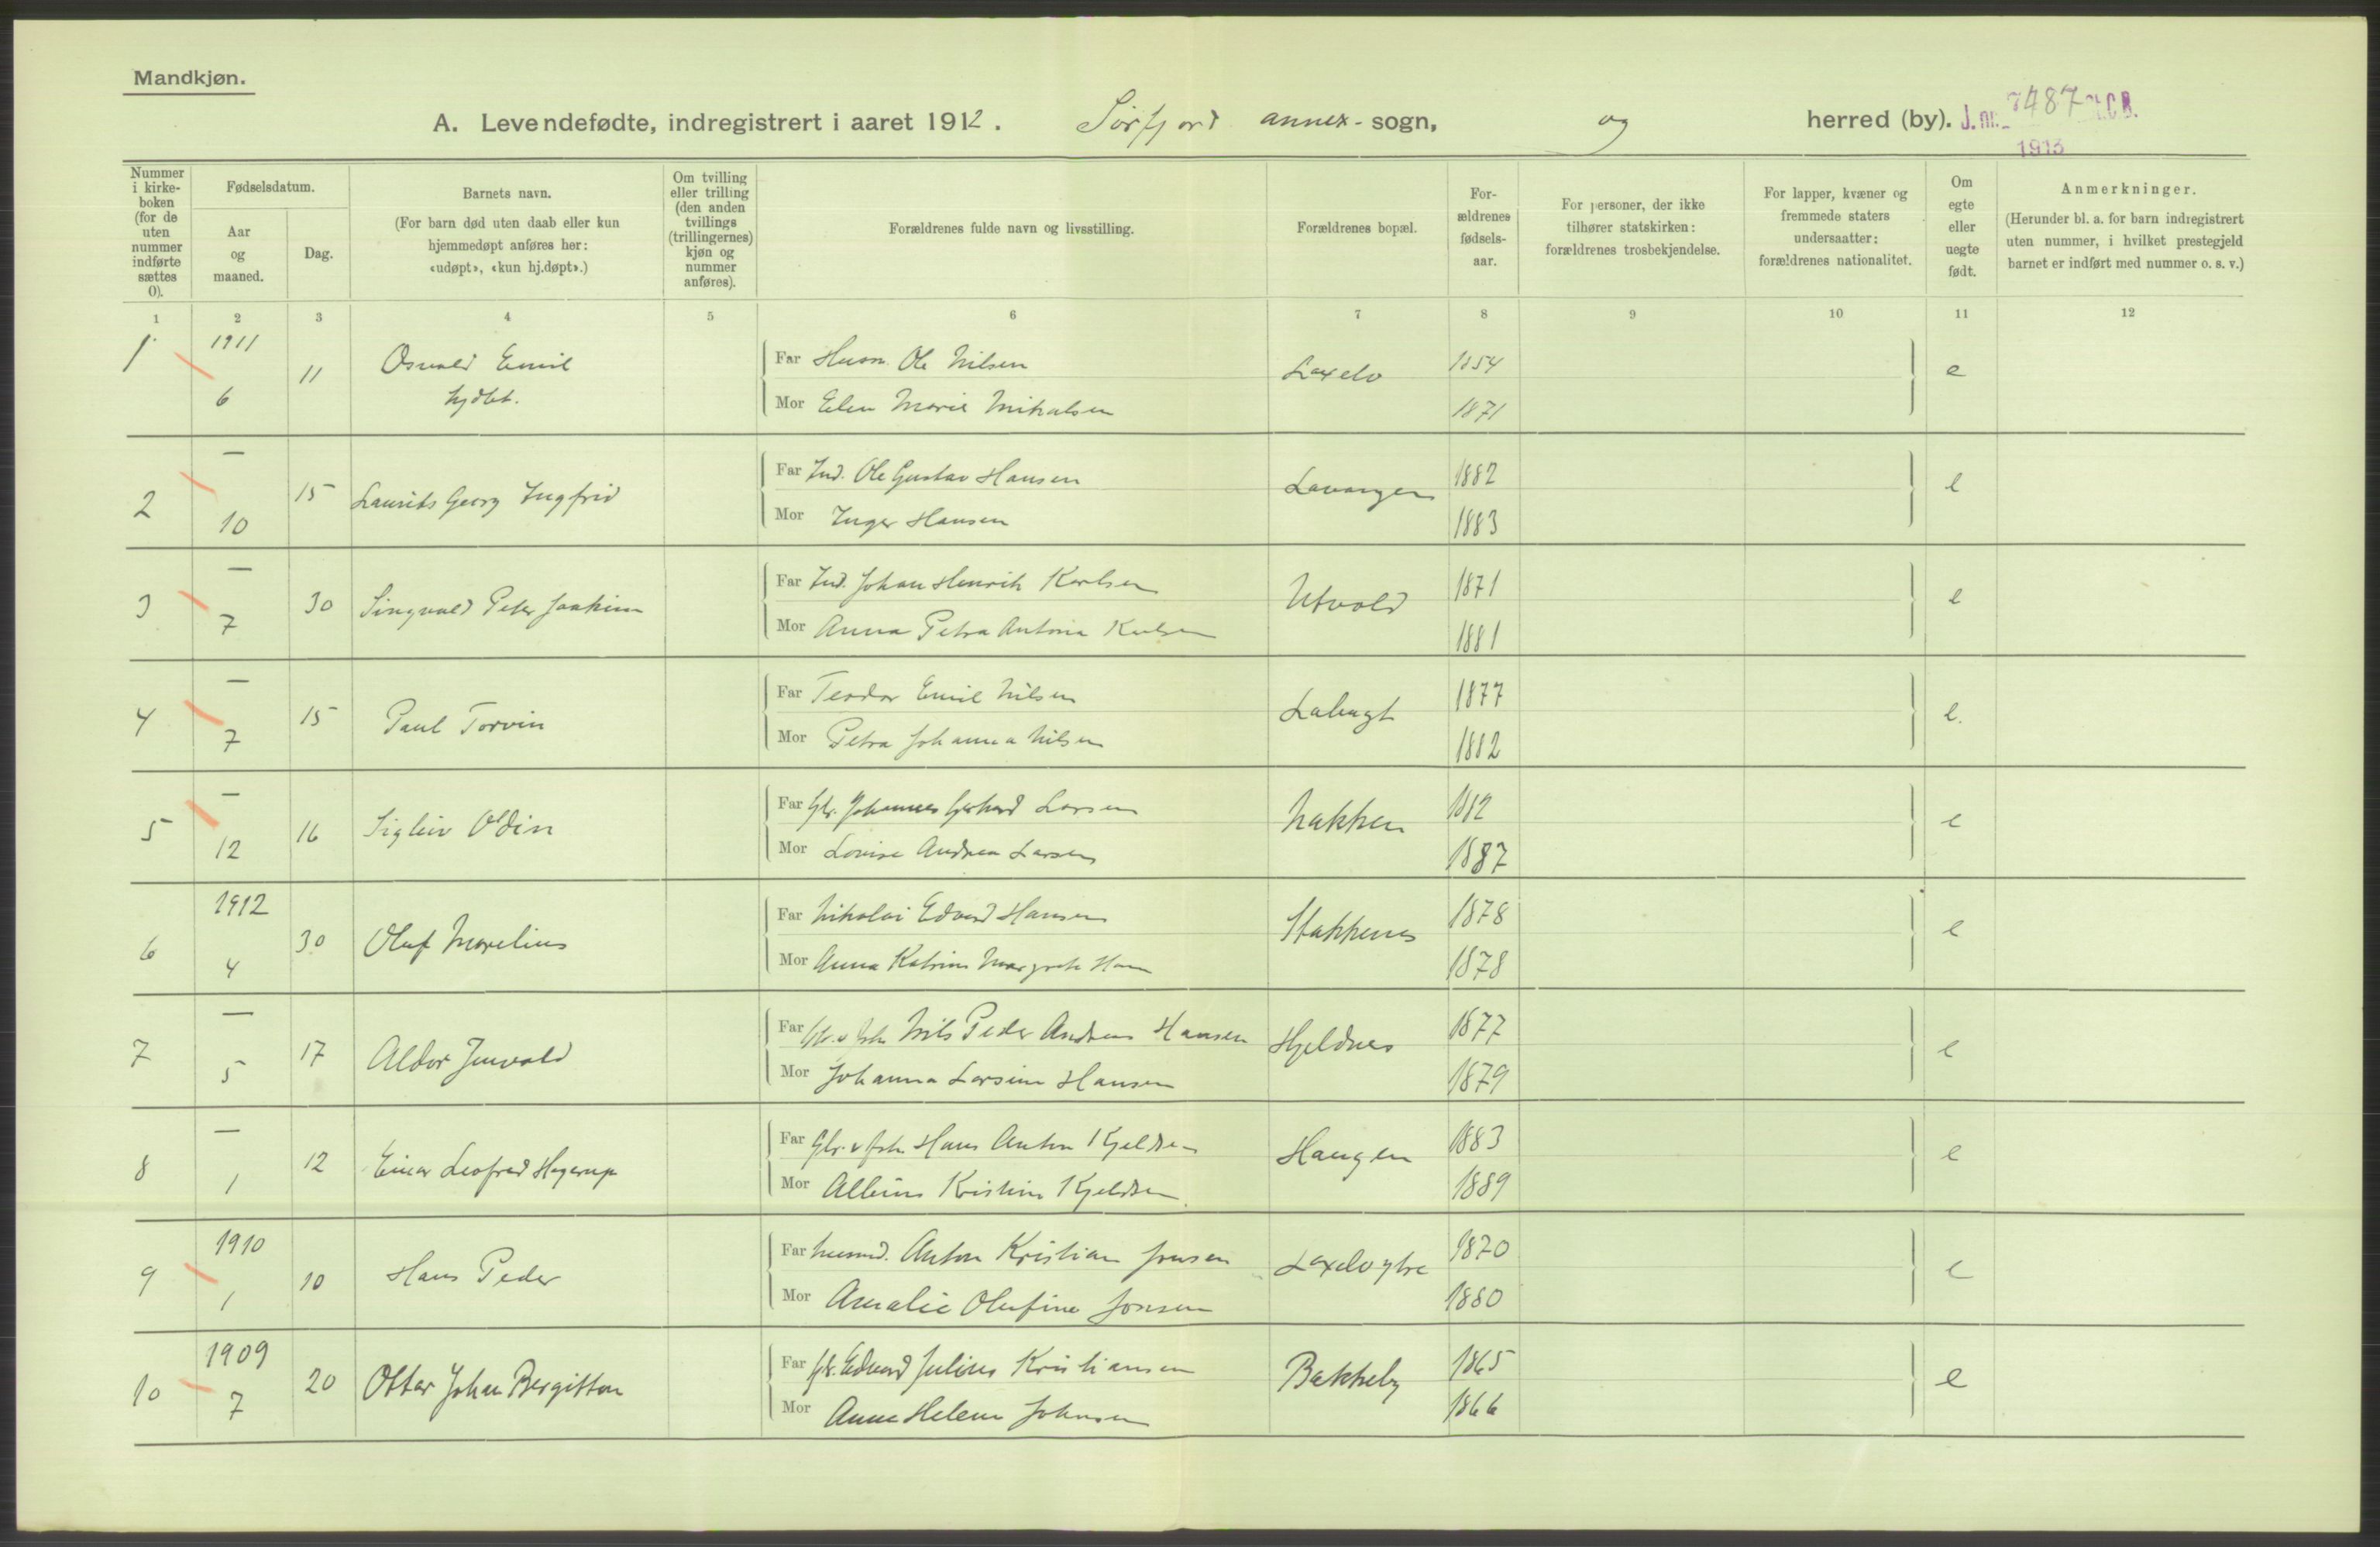 Mandkjøn.
A. Levendefødte, indregistrert i aaret 1912. Sörfjord annex- sogn, og herred (by). J.nr. 7487 St.C.B.
1913
Nummer i kirkeboken (for de uten nummer indførte sættes 0).
Fødselsdatum.
Aar og maaned.
Dag.
Barnets navn.
(For barn død uten daab eller kun hjemmedøpt anføres her: «udøpt», «kun hj.døpt».)
Om tvilling eller trilling (den anden tvillings (trillingernes) kjøn og nummer anføres).
Forældrenes fulde navn og livsstilling.
Forældrenes bopæl.
Forældrenes fødselsaar.
For personer, der ikke tilhører statskirken: forældrenes trosbekjendelse.
For lapper, kvæner og fremmede staters undersaatter: forældrenes nationalitet.
Om egte eller uegte født.
Anmerkninger.
(Herunder bl. a. for barn indregistrert uten nummer, i hvilket prestegjeld barnet er indført med nummer o. s. v.)
1 2 3 4 5 6 7 8 9 10 11 12
1 1911 6 11 Osvald Emil hjdbt. Far Husm. Ole Nilsen Laxelv 1854 e
Mor Elen Marie Mikalsen 1871
2 — 10 15 Laurits Georg Ingfrid Far Ind. Ole Gustav Hansen Lavangen 1882 e
Mor Inger Hansen 1883
3 — 7 30 Singvald Peter Joakim Far Ind. Johan Henrik Karlsen Utvold 1871 e
Mor Anna Petra Antonie Karlsen 1881
4 — 7 15 Paul Torvin Far Teodor Emil Nilsen 1877 e.
Mor Petra Johanna Nilsen 1882
5 — 12 16 Sigleiv Odin Far Gbr. Johannes Gerhard Larsen Nakken 1882 e
Mor Lovise Andrea Larsen 1887
6 1912 4 30 Oluf Marelius Far Nikolai Edvard Hansen Stakkenes 1878 e
Mor Anna Katrine Margrete Han 1878
7 — 5 17 Aldor Jenvald Far Gbr. v fsk Nils Peder Andreas Hansen Hjeldnes 1877 e
Mor Johanna Larsine Hansen 1879
8 — 1 12 Einar Leofred Hagerup Far Gbr. v fsk. Hans Anton Kjeldsen Haugen 1883 e
Mor Albine Kristine Kjeldsen 1889
9 1910 1 10 Hans Peder Far husmd. Anton Kristian Jensen Laxelv ytre 1870 e
Mor Amalie Olufine Jensen 1880
10 1909 7 20 Ottar Johan Bergitton Far gbr. Edvard Julius Kristiansen Bakkeby 1865 e
Mor Anne Helene Johnsen 1866